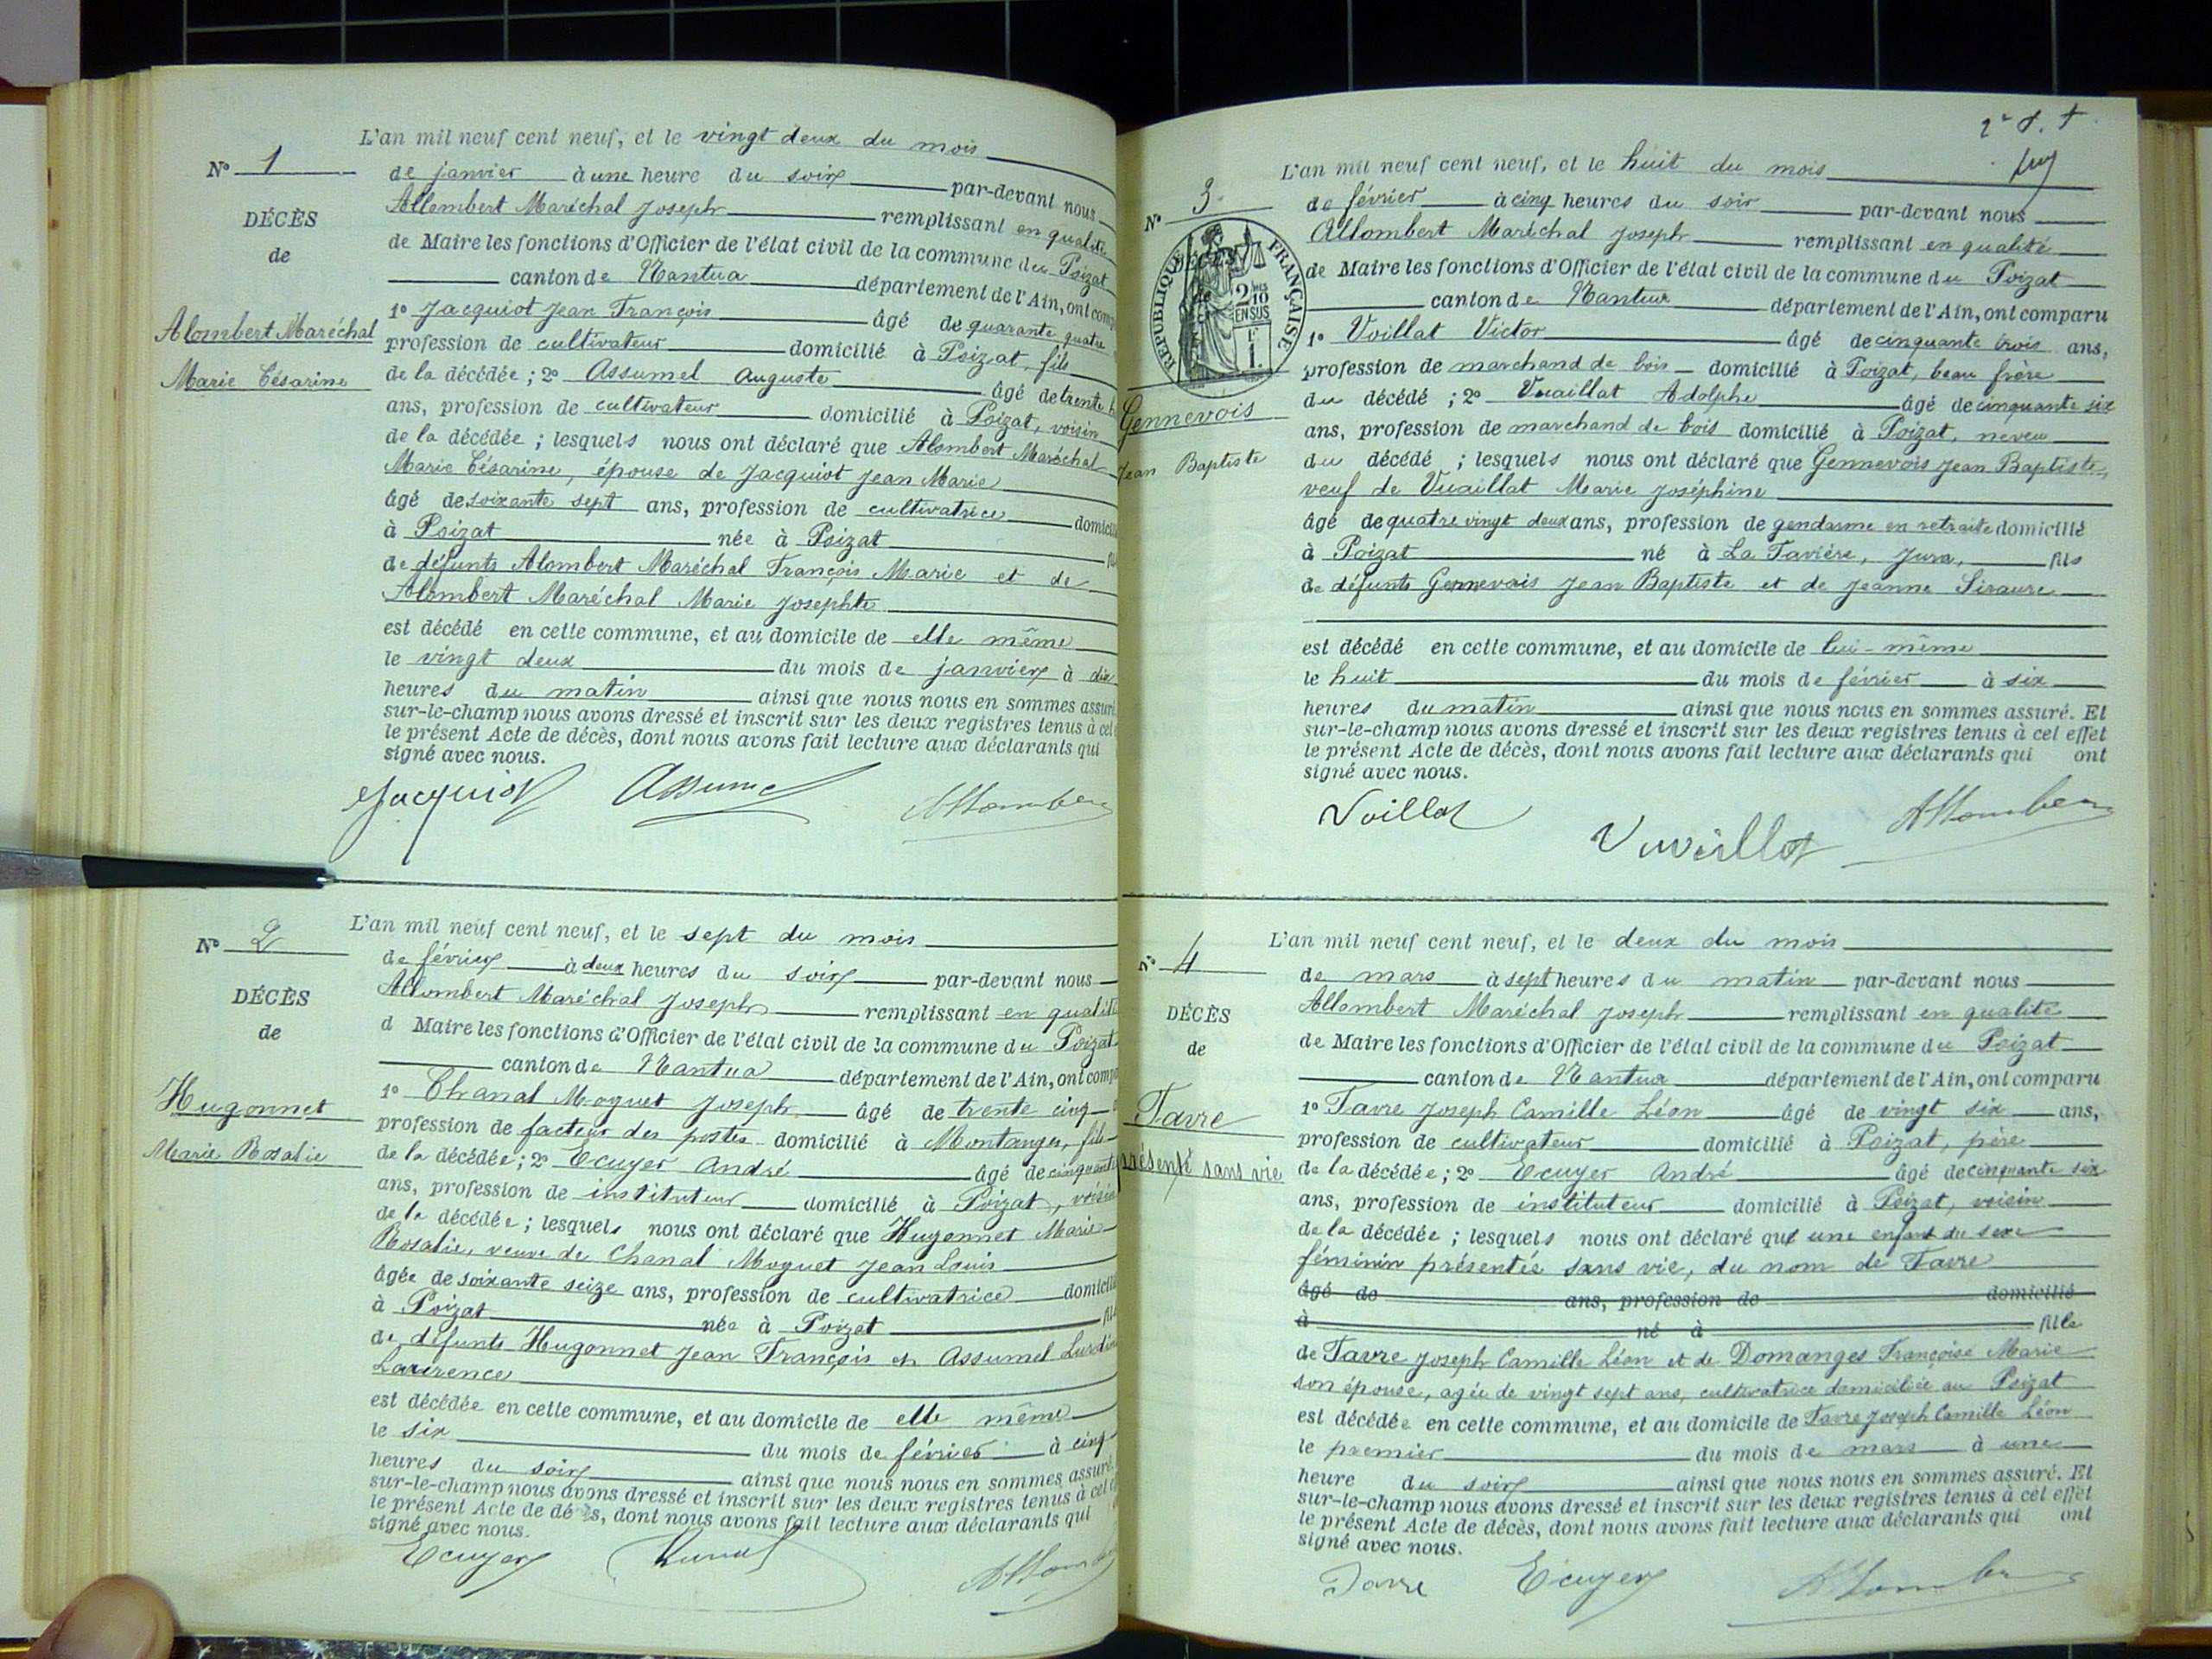 N° 1
DÉCÈS
de
Alombert Maréchal
Marie Césarine
L'an mil neuf cent neuf, et le vingt deux du mois
de janvier à une heure du soir par-devant nous
Allombert Maréchal Joseph remplissant en qualité
de Maire les fonctions d'Officier de l'état civil de la commune du Poizat
canton de Nantua département de l'Ain, ont comp
1° Jacquiot Jean François âgé de quarante quatre
profession de cultivateur domicilié à Poizat, fils
de la décédée ; 2° Assumel Auguste âgé de trente
ans, profession de cultivateur domicilié à Poizat, voisin
de la décédée ; lesquels nous ont déclaré que Alombert Maréchal
Marie Césarine, épouse de Jacquiot Jean Marie
âgé de soixante sept ans, profession de cultivatrice domici
à Poizat née à Poizat fil
de défunts Alombert Maréchal François Marie et de
Alombert Maréchal Marie Josephte
est décédé en cette commune, et au domicile de elle même
le vingt deux du mois de janvier à dix
heures du matin ainsi que nous nous en sommes assuré
sur-le-champ nous avons dressé et inscrit sur les deux registres tenus à cet
le présent Acte de décès, dont nous avons fait lecture aux déclarants qui
signé avec nous.
Jacquiot Assumel Allomber
N° 2
DÉCÈS
de
Hugonnet
Marie Rosalie
L'an mil neuf cent neuf, et le sept du mois
de février à deux heures du soir par-devant nous
Allombert Maréchal Joseph remplissant en qualité
d Maire les fonctions d'Officier de l'état civil de la commune du Poizat
canton de Nantua département de l'Ain, ont comp
1° Chanal Moguet Joseph âgé de trente cinq
profession de facteur des postes domicilié à Montanges, fils
de la décédée ; 2° Ecuyer André âgé de cinquante
ans, profession de instituteur domicilié à Poizat, voisin
de la décédée ; lesquels nous ont déclaré que Hugonnet Marie
Rosalie, veuve de Chanal Moguet Jean Louis
âgée de soixante seize ans, profession de cultivatrice domicilié
à Poizat née à Poizat fil
de défunts Hugonnet Jean François et Assumel
Laurence
est décédée en cette commune, et au domicile de elle même
le six du mois de février à cinq
heures du soir ainsi que nous nous en sommes assuré.
sur-le-champ nous avons dressé et inscrit sur les deux registres tenus à cet
le présent Acte de décès, dont nous avons fait lecture aux déclarants qui
signé avec nous.
Ecuyer Allom
2e
N° 3
RÉPUBLIQUE FRANÇAISE
DÉCÈS
de
2/10 EN SUS
1 F
Gennevois
Jean Baptiste
L'an mil neuf cent neuf, et le huit du mois
de février à cinq heures du soir par-devant nous
Allombert Maréchal Joseph remplissant en qualité
de Maire les fonctions d'Officier de l'état civil de la commune du Poizat
canton de Nantua département de l'Ain, ont comparu
1° Voillat Victor âgé de cinquante trois ans,
profession de marchand de bois domicilié à Poizat, beau frère
du décédé ; 2° Vuaillat Adolphe âgé de cinquante six
ans, profession de marchand de bois domicilié à Poizat, neveu
du décédé ; lesquels nous ont déclaré que Gennevois Jean Baptiste,
veuf de Vuaillat Marie Joséphine
âgé de quatre vingt deux ans, profession de gendarme en retraite domicilié
à Poizat né à La Favière, Jura, fils
de défunts Gennevois Jean Baptiste et de Jeanne Siraure
est décédé en cette commune, et au domicile de lui-même
le huit du mois de février à six
heures du matin ainsi que nous nous en sommes assuré. Et
sur-le-champ nous avons dressé et inscrit sur les deux registres tenus à cet effet
le présent Acte de décès, dont nous avons fait lecture aux déclarants qui ont
signé avec nous.
Voillat Vuaillat Allomber
N° 4
DÉCÈS
de
Favre
présenté sans vie
L'an mil neuf cent neuf, et le deux du mois
de mars à sept heures du matin par-devant nous
Allombert Maréchal Joseph remplissant en qualité
de Maire les fonctions d'Officier de l'état civil de la commune du Poizat
canton de Nantua département de l'Ain, ont comparu
1° Favre Joseph Camille Léon âgé de vingt six ans,
profession de cultivateur domicilié à Poizat, père
de la décédée ; 2° Ecuyer André âgé de cinquante six
ans, profession de instituteur domicilié à Poizat, voisin
de la décédée ; lesquels nous ont déclaré que une enfant du sexe
féminin présentée sans vie, du nom de Favre
âgé de ans, profession de domicilié
à né à fille
de Favre Joseph Camille Léon et de Domanges Françoise Marie
son épouse, agée de vingt sept ans, cultivatrice domiciliée au Poizat
est décédée en cette commune, et au domicile de Favre Joseph Camille Léon
le premier du mois de mars à une
heure du soir ainsi que nous nous en sommes assuré. Et
sur-le-champ nous avons dressé et inscrit sur les deux registres tenus à cet effet
le présent Acte de décès, dont nous avons fait lecture aux déclarants qui ont
signé avec nous.
Favre Ecuyer Allombe